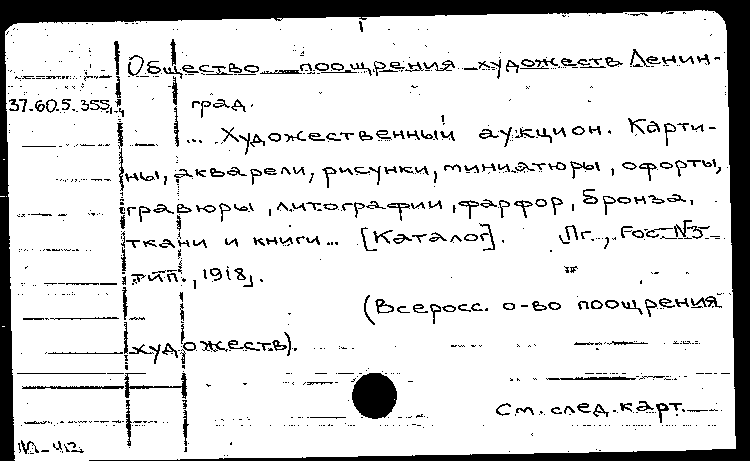 Общество поощрения художеств Ленин-
37.60.5.355, град.
... Художественный аукцион. Карти-
ны, акварели, рисунки, миниатюры, офорты,
гравюры, литографии, фарфор, бронза,
ткани и книги... [Каталог]. Пг., Гос. №3
тип., 1918,.
(Всеросс. о-во поощрения
художеств).
См. след. карт.